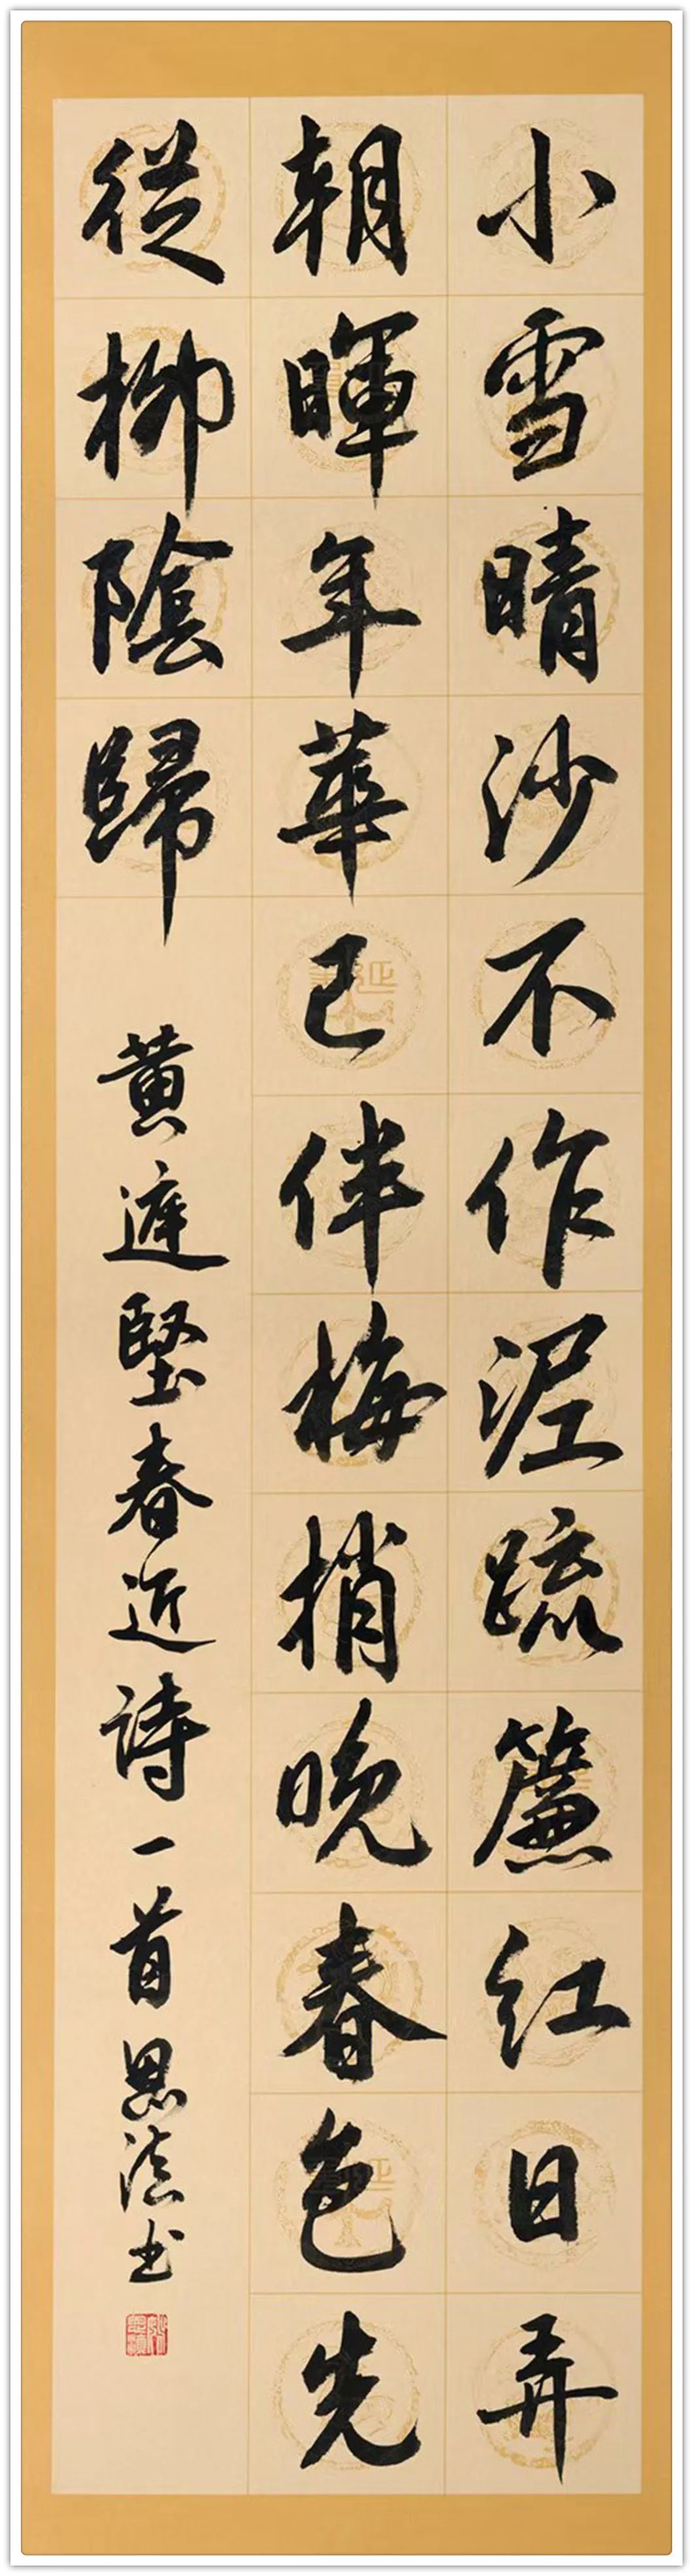 小雪晴沙不作泥疏簾红日弄
朝暉年華已伴梅梢晚春色先
從柳陰歸 黄庭堅春近诗一首思书